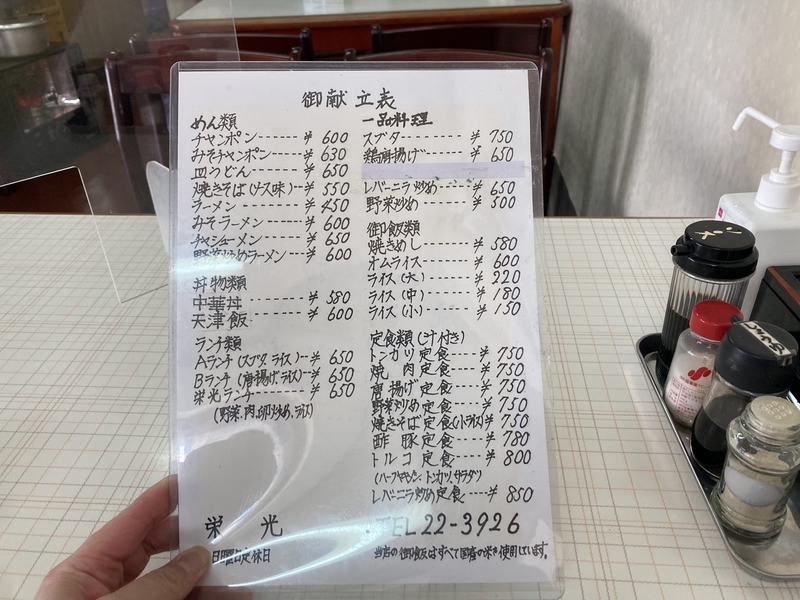 御献立表
めん類
チャンポン------¥ 600
みそチャンポン---¥ 630
皿うどん------¥ 650
焼きそば(ソース味)--¥ 550
ラーメン------¥ 450
みそラーメン----¥ 600
チャシューメン----¥ 650
野菜炒めラーメン---¥ 600
丼物類
中華丼------¥ 580
天津飯------¥ 600
ランチ類
Aランチ(スブタ、ライス)--¥ 650
Bランチ(唐揚げ、ライス)--¥ 650
栄光ランチ------¥ 650
(野菜、肉、卵炒め、ライス)
一品料理
スブタ--------¥ 750
鶏唐揚げ------¥ 650
レバーニラ炒め----¥ 650
野菜炒め------¥ 500
御飯類
焼きめし------¥ 580
オムライス-----¥ 600
ライス(大)-----¥ 220
ライス(中)-----¥ 180
ライス(小)-----¥ 150
定食類(汁付き)
トンカツ定食---¥ 750
焼肉定食---¥ 750
唐揚げ定食---¥ 750
野菜炒め定食---¥ 750
焼きそば定食(小ライス)¥ 750
酢豚定食---¥ 780
トルコ定食---¥ 800
(ハーフヤキメシ、トンカツ、サラダ)
レバーニラ炒め定食---¥ 850
栄光
TEL22-3926
日曜日定休日
当店の御飯はすべて国産の米を使用しています。